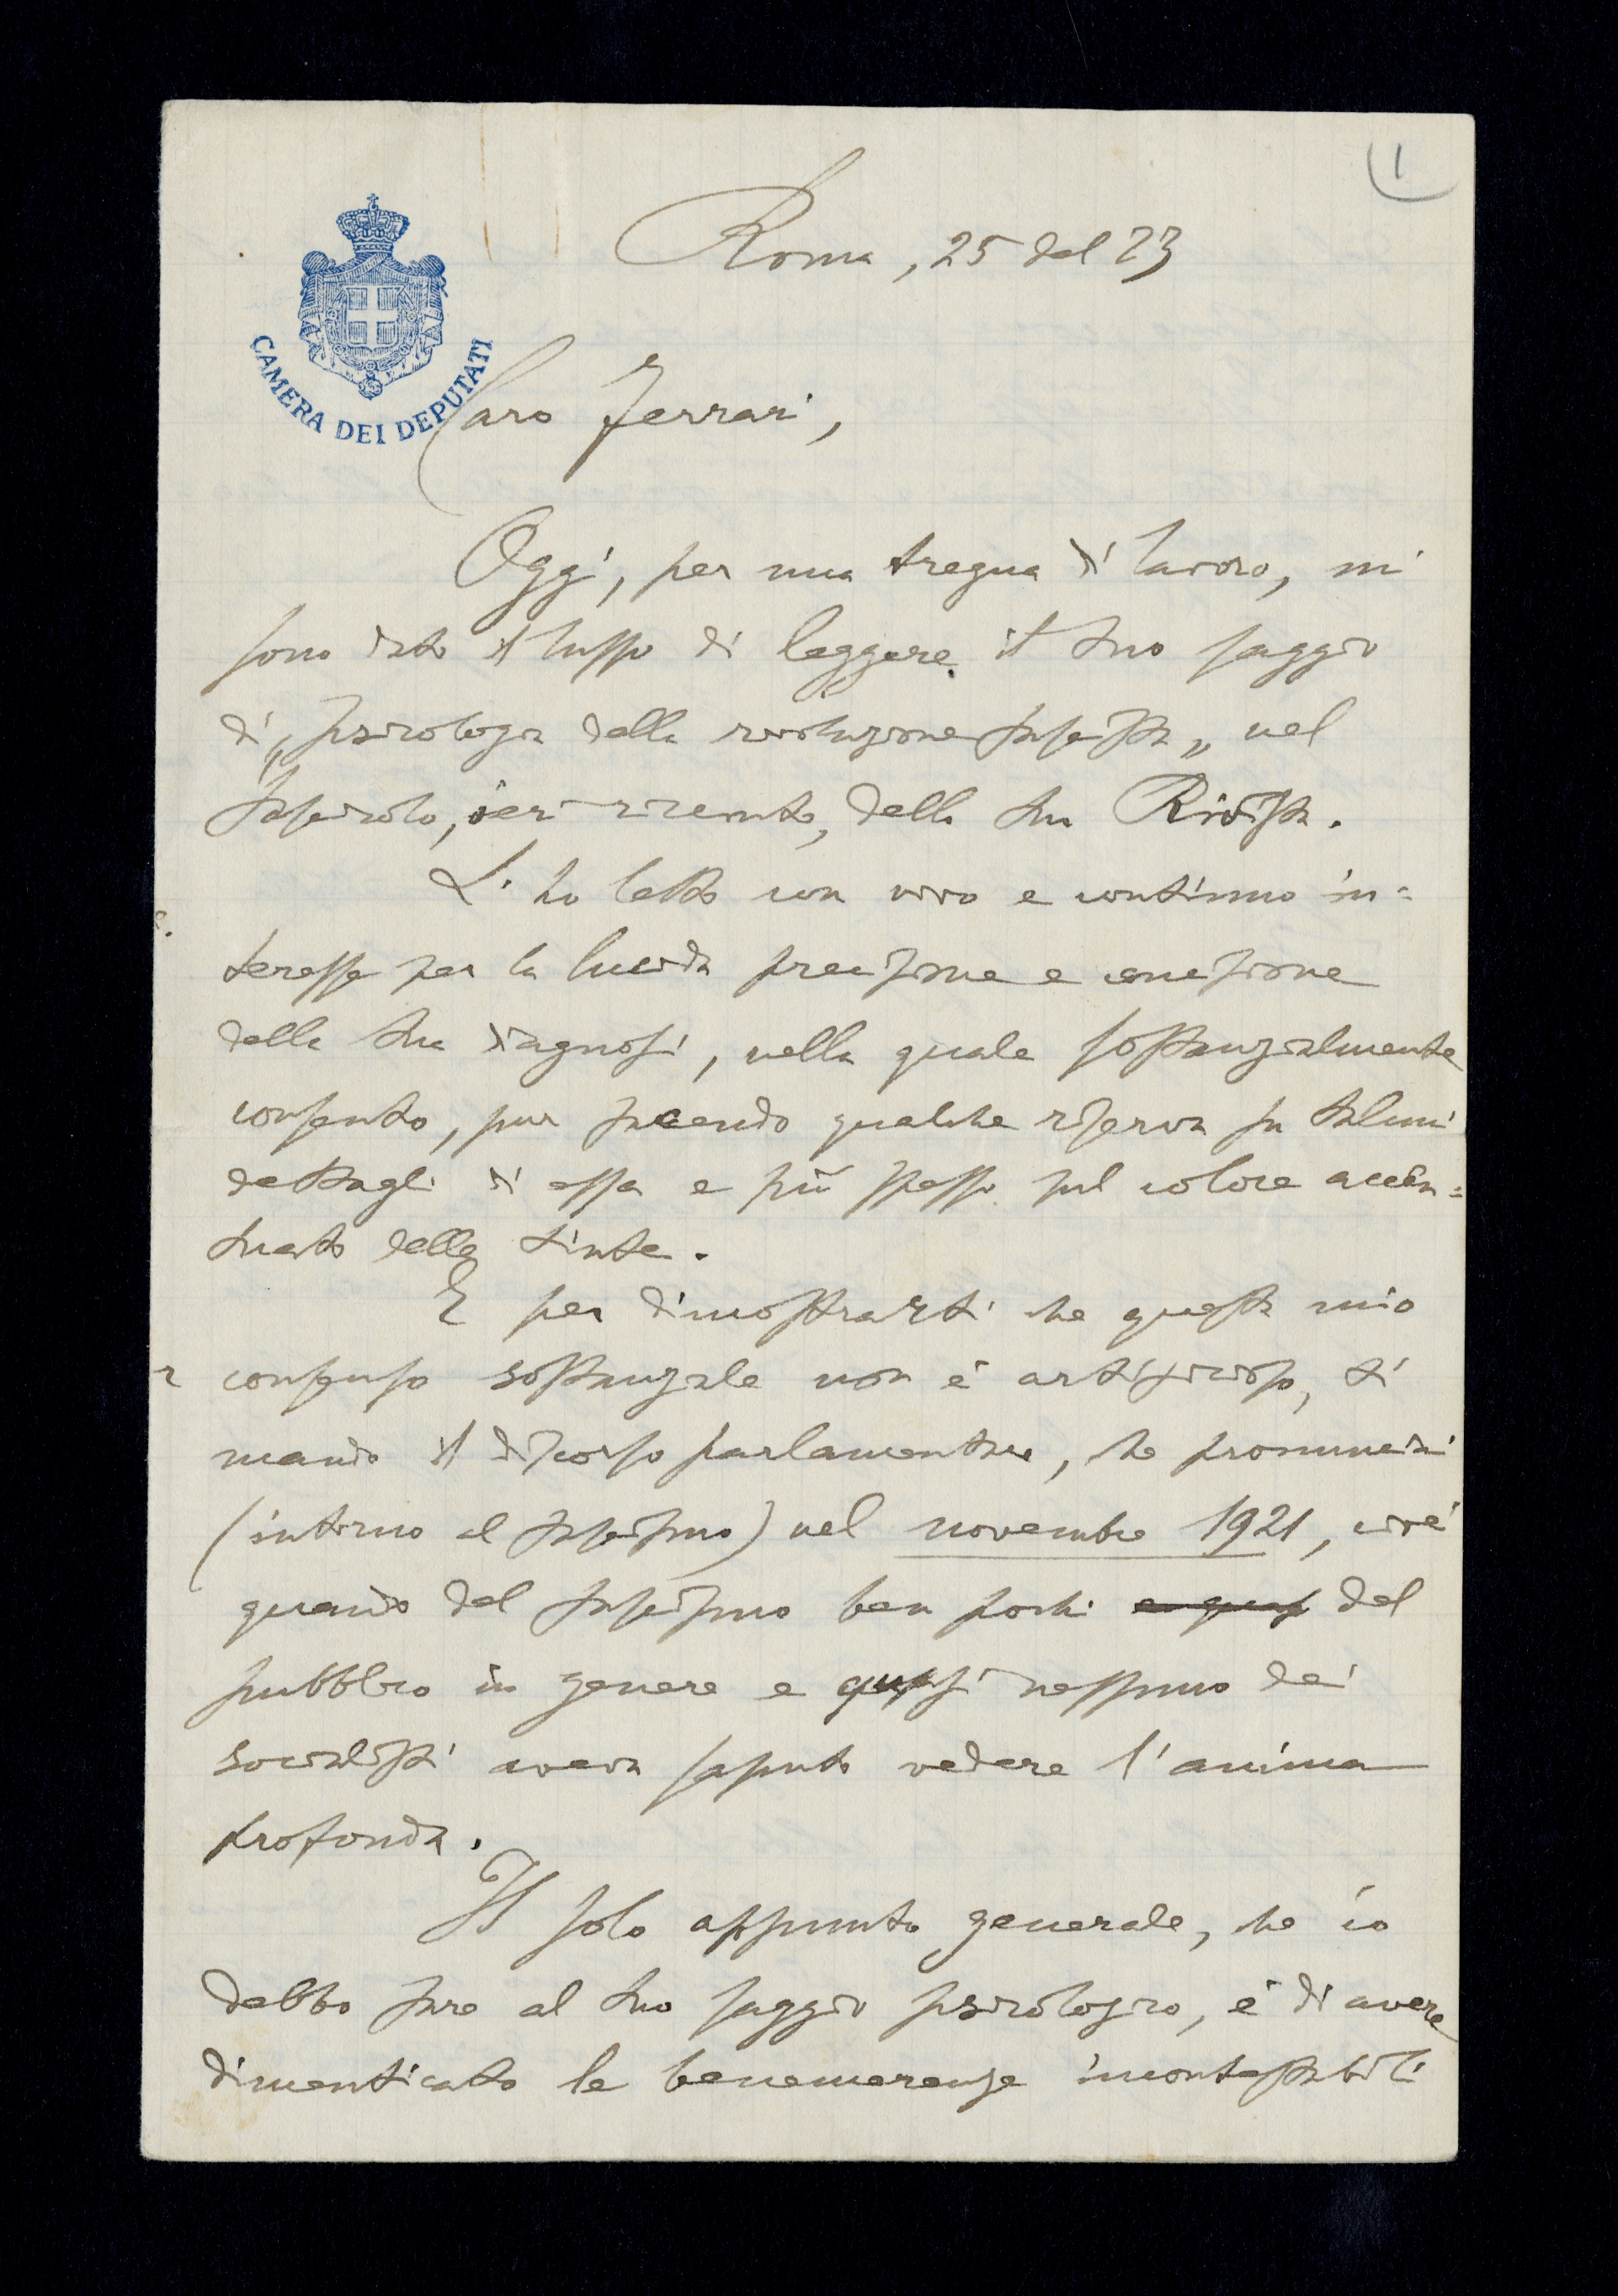 1
Roma, 25 del 23
CAMERA DEI DEPUTATI
Caro Ferrari,
Oggi, per una tregua di lavoro, mi
sono dato il lusso di leggere il tuo saggio
di „psicologia della rivoluzione fascista„ nel
fascicolo, ieri ricevuto, della tua Rivista.
L'ho letto con vivo e continuo in=
teresse per la lucida precisione e concisione
della tua diagnosi, nella quale sostanzialmente
consento, pur facendo qualche riserva su taluni
dettagli di essa e più spesso sul colore accen=
tuato delle tinte.
E per dimostrarti che questo mio
consenso sostanziale non è artificioso, ti
mando il discorso parlamentare, che pronunciai
(intorno al fascismo) nel novembre 1921, cioè
quando del fascismo ben pochi del
pubblico in genere e quasi nessuno dei
socialisti aveva saputo vedere l'anima
profonda.
Il solo appunto generale, che io
debbo fare al tuo saggio psicologico, è di avere
dimenticato le benemerenze incontestabili